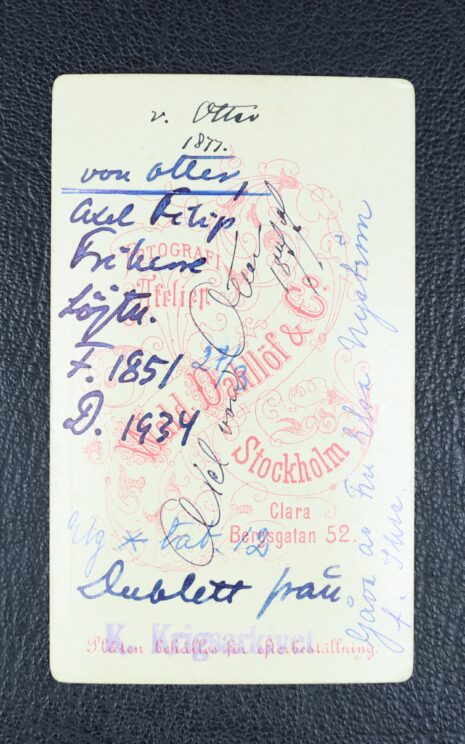 v. Otter
1877.
von Otter,
Axel Filip
Friherre
Löjtn.
F. 1851
D. 1934
FOTOGRAFI
Atelier
Wald. Dahllöf & Co.
Stockholm
Clara
Bergsgatan 52.
Axel von Otter
27/8
Ug * tab 12
Dublett från
K. Krigsarkivet
Plåten behålles för efterbeställning.
Gåva av fru Elsa Nyström